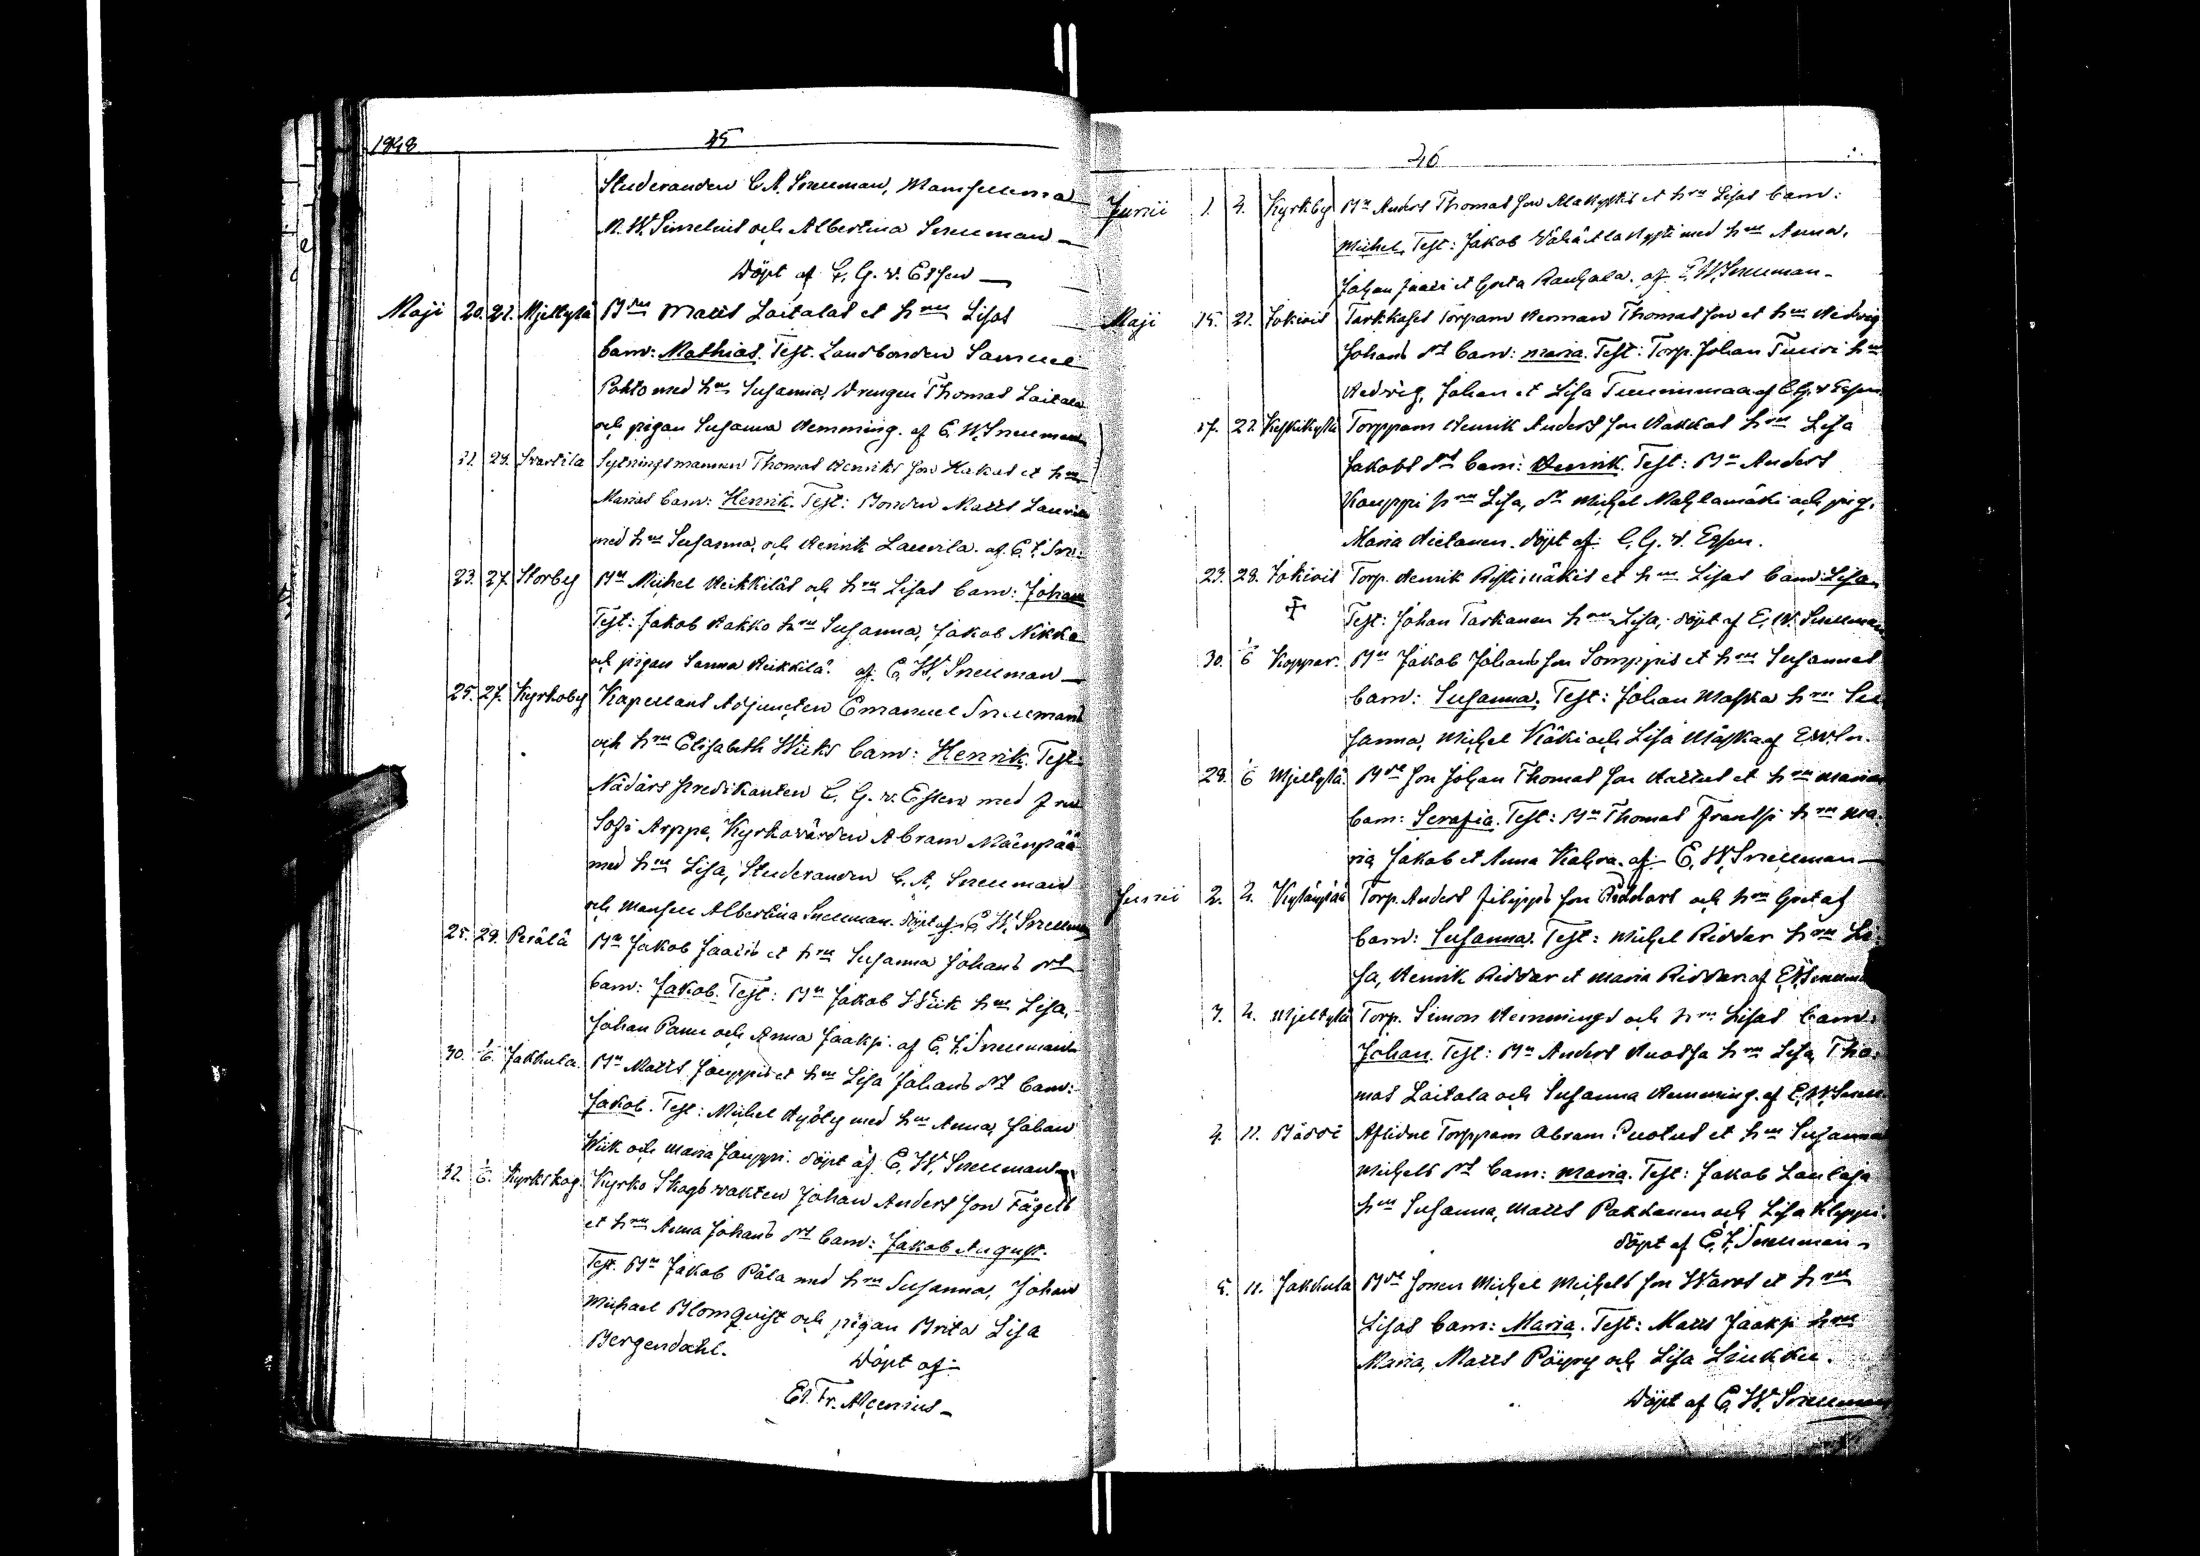 1848
45
Studeranden C. A. Snellman, Mamsellerna
A. W. Simelius och Albertina Snellman —
Döpt af C. G. v. Essen —
Maji 20. 21. Mjelkylä Bdn Matts Laitalas et hru Lisas
barn: Mathias. Test. Landbonden Samuel
Pohto med hru Susanna, Drengen Thomas Laitala
och pigan Susanna Hemming. af E. W. Snellman
21. 24. Svartila Sytningsmannen Thomas Henriks son Kakas et hru
Marias barn: Henrik. Test: Bonden Matts Laurila
med hru Susanna, och Henrik Laurila. af E. F. Sn:
23. 27. Storby Bn Michel Heikkiläs och hru Lisas barn: Johan
Test: Jakob Kakko hru Susanna, Jakob Nikka
och pigan Sanna Heikkilä. af E. W. Snellman —
25. 27. Kyrkoby Kapellans Adjuncten Emanuel Snellmans
och hru Elisabeth Wicks barn: Henrik. Test:
Nådårs predikanten C. G. v. Essen med fru
Sofi Arppe, Kyrkovärden Abram Mäenpää
med hru Lisa, Studeranden C. A. Snellman
och Mansell Albertina Snellman. Döpt af E. W. Snellman
25. 29. Perälä Bn Jakob Jaaris et hru Susanna Johans dr
barn: Jakob. Test: Bn Jakob Wiik hru Lisa,
Johan Panu och Anna Jaakji. af E. F. Snellman
30. 1/6. Jakkula. Bn Matts Jouppis et hru Lisa Johans dr barn:
Jakob. Test: Michel Hyöty med hru Anna, Johan
Wiik och Maria Jouppi. Döpt af E. W. Snellman
31. 1/6. Kyrkskog. Kyrko Skogsvakten Johan Anders son Fågels
et hru Anna Johans dr barn: Jakob August.
Test. Bn Jakob Päla med hru Susanna, Johan
Michael Blomqvist och pigan Brita Lisa
Bergendahl.
Döpt af
El. Fr. Alcenius —
46
Junii 1. 4. Kyrkby Bn Anders Thomas son Alakystis et hru Lisas barn:
Michel. Test: Jakob med hru Anna,
Johan Jaari et Greta Rauhala. af E. W. Snellman —
Maji 15. 21. Jokivis Torpam Herman Thomas son et hru Hedvig
Johans dr barn: Maria. Test: Torp. Johan Tuuri hru
Hedvig, Johan et Lisa Tuurinmaa af C. G. v Essen
17. 22. Keskikylä Torppam Henrik Anders son Kakkos hru Lisa
Jakobs drs barn: Henrik. Test: Bn Anders
Kauppi hru Lisa, dr Michel Mahlamäki och pig.
Maria Hietanen. döpt af C. G. v. Essen.
23. 28. Jokivis Torp. Henrik Ristimäkis et hru Lisas barn Lisa.
Test: Johan Tarkanen hru Lisa, döpt af E. W. Snellman
30. 1/6 Koppar. Bn Jakob Johans son Somppis et hru Susannas
barn: Susanna. Test: Johan Maska hru Su
sanna, Michel Käki och Lisa Maska af E. W. Sn.
29. 1/6 Mjelkylä. Bde son Johan Thomas son et hru Marias
barn: Serafia. Test: Bn Thomas Frantsi hru Ma
ria Jakob et Anna Kahra. af E. W. Snellman —
Junii 2. 4. Torp. Anders Filipps son Riddars och hru Gretas
barn: Susanna. Test: Michel Ridder hru Li
sa, Henrik Ridder et Maria Ridder af E W Snellman
3. 4. Mjelkylä Torp. Simon Hemmings och hru Lisas barn:
Johan. Test: Bn Anders Ruossa hru Lisa, Tho
mas Laitala och Susanna Hemming. af E. W. Snell
4. 11. Aflidne Torppam Abram Puotus et hru Susanna
Michels dr barn: Maria. Test: Jakob Laulaja
hru Susanna, Matts Pakkanen och Lisa Klippi.
döpt af E. F. Snellman —
5. 11. Jakkula Bde sonen Michel Michels son Wares et hru
Lisas barn: Maria. Test: Matts Jaakji hru
Maria, Matts Pöyry och Lisa Liukku.
Döpt af E. W. Snellman